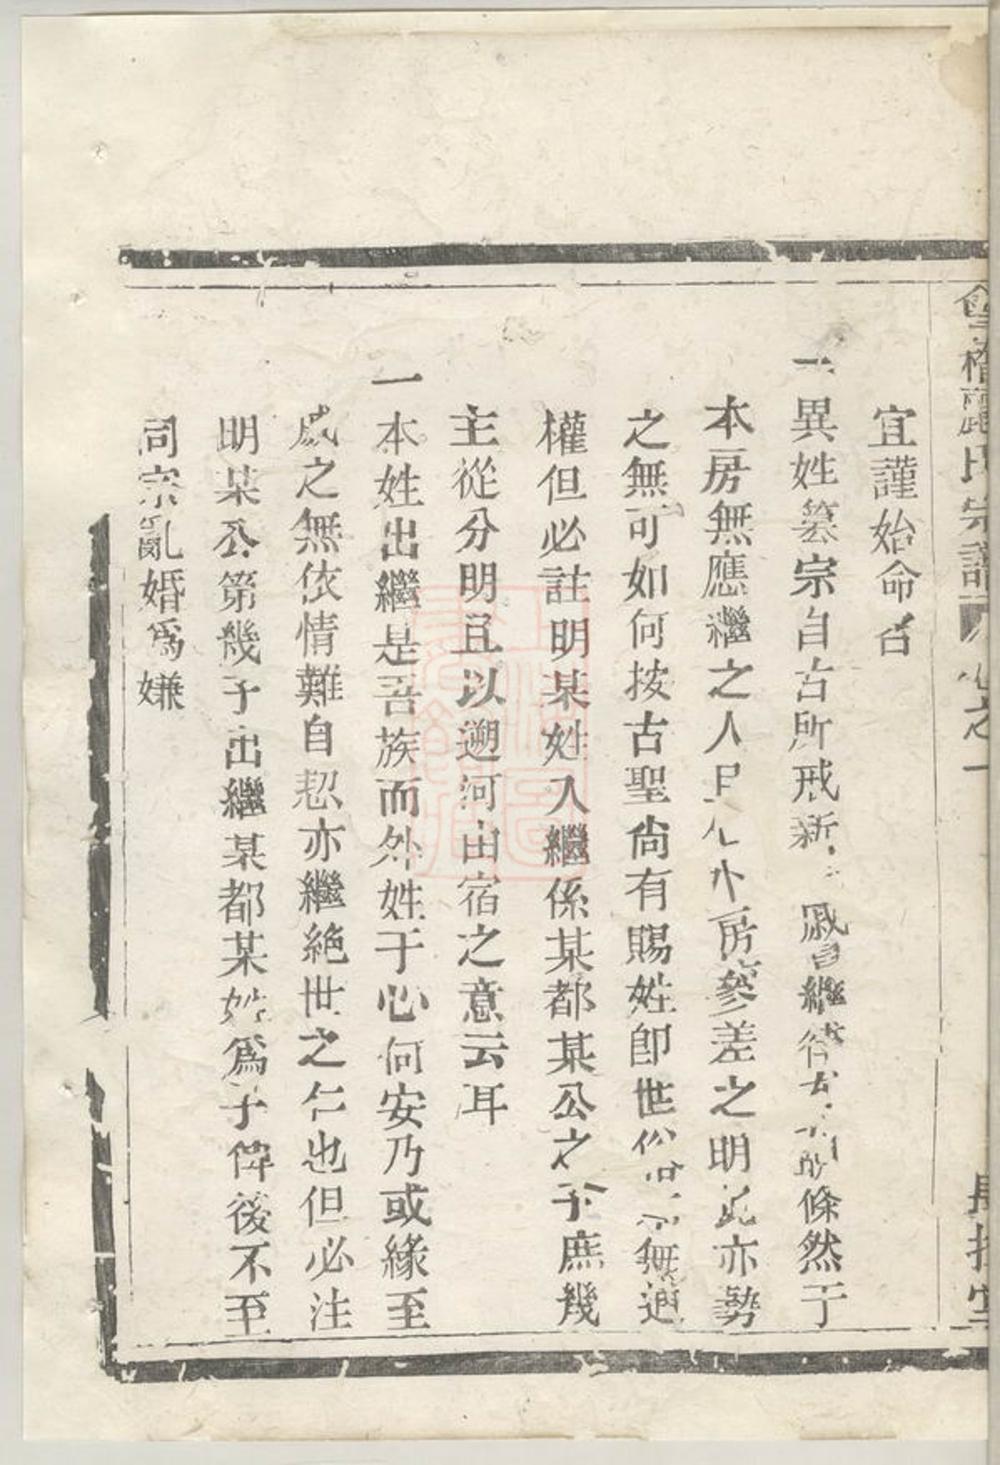 會稽龎氏宗譜 卷之一
宜謹始命名
一異姓簒宗自古所戒新 戚 繼 條然于
本房無應繼之人且 房叅差之明 亦勢
之無可如何按古聖尙有賜姓卽世俗 無通
權但必註明某姓入繼係某都某公之子庶幾
主從分明且以遡河由宿之意云耳
一本姓出繼是吾族而外姓于心何安乃或緣至
戚之無依情難自恝亦繼絶世之仁也但必注
明某公第幾子出繼某都某姓爲子俾後不至
同宗亂婚爲嫌